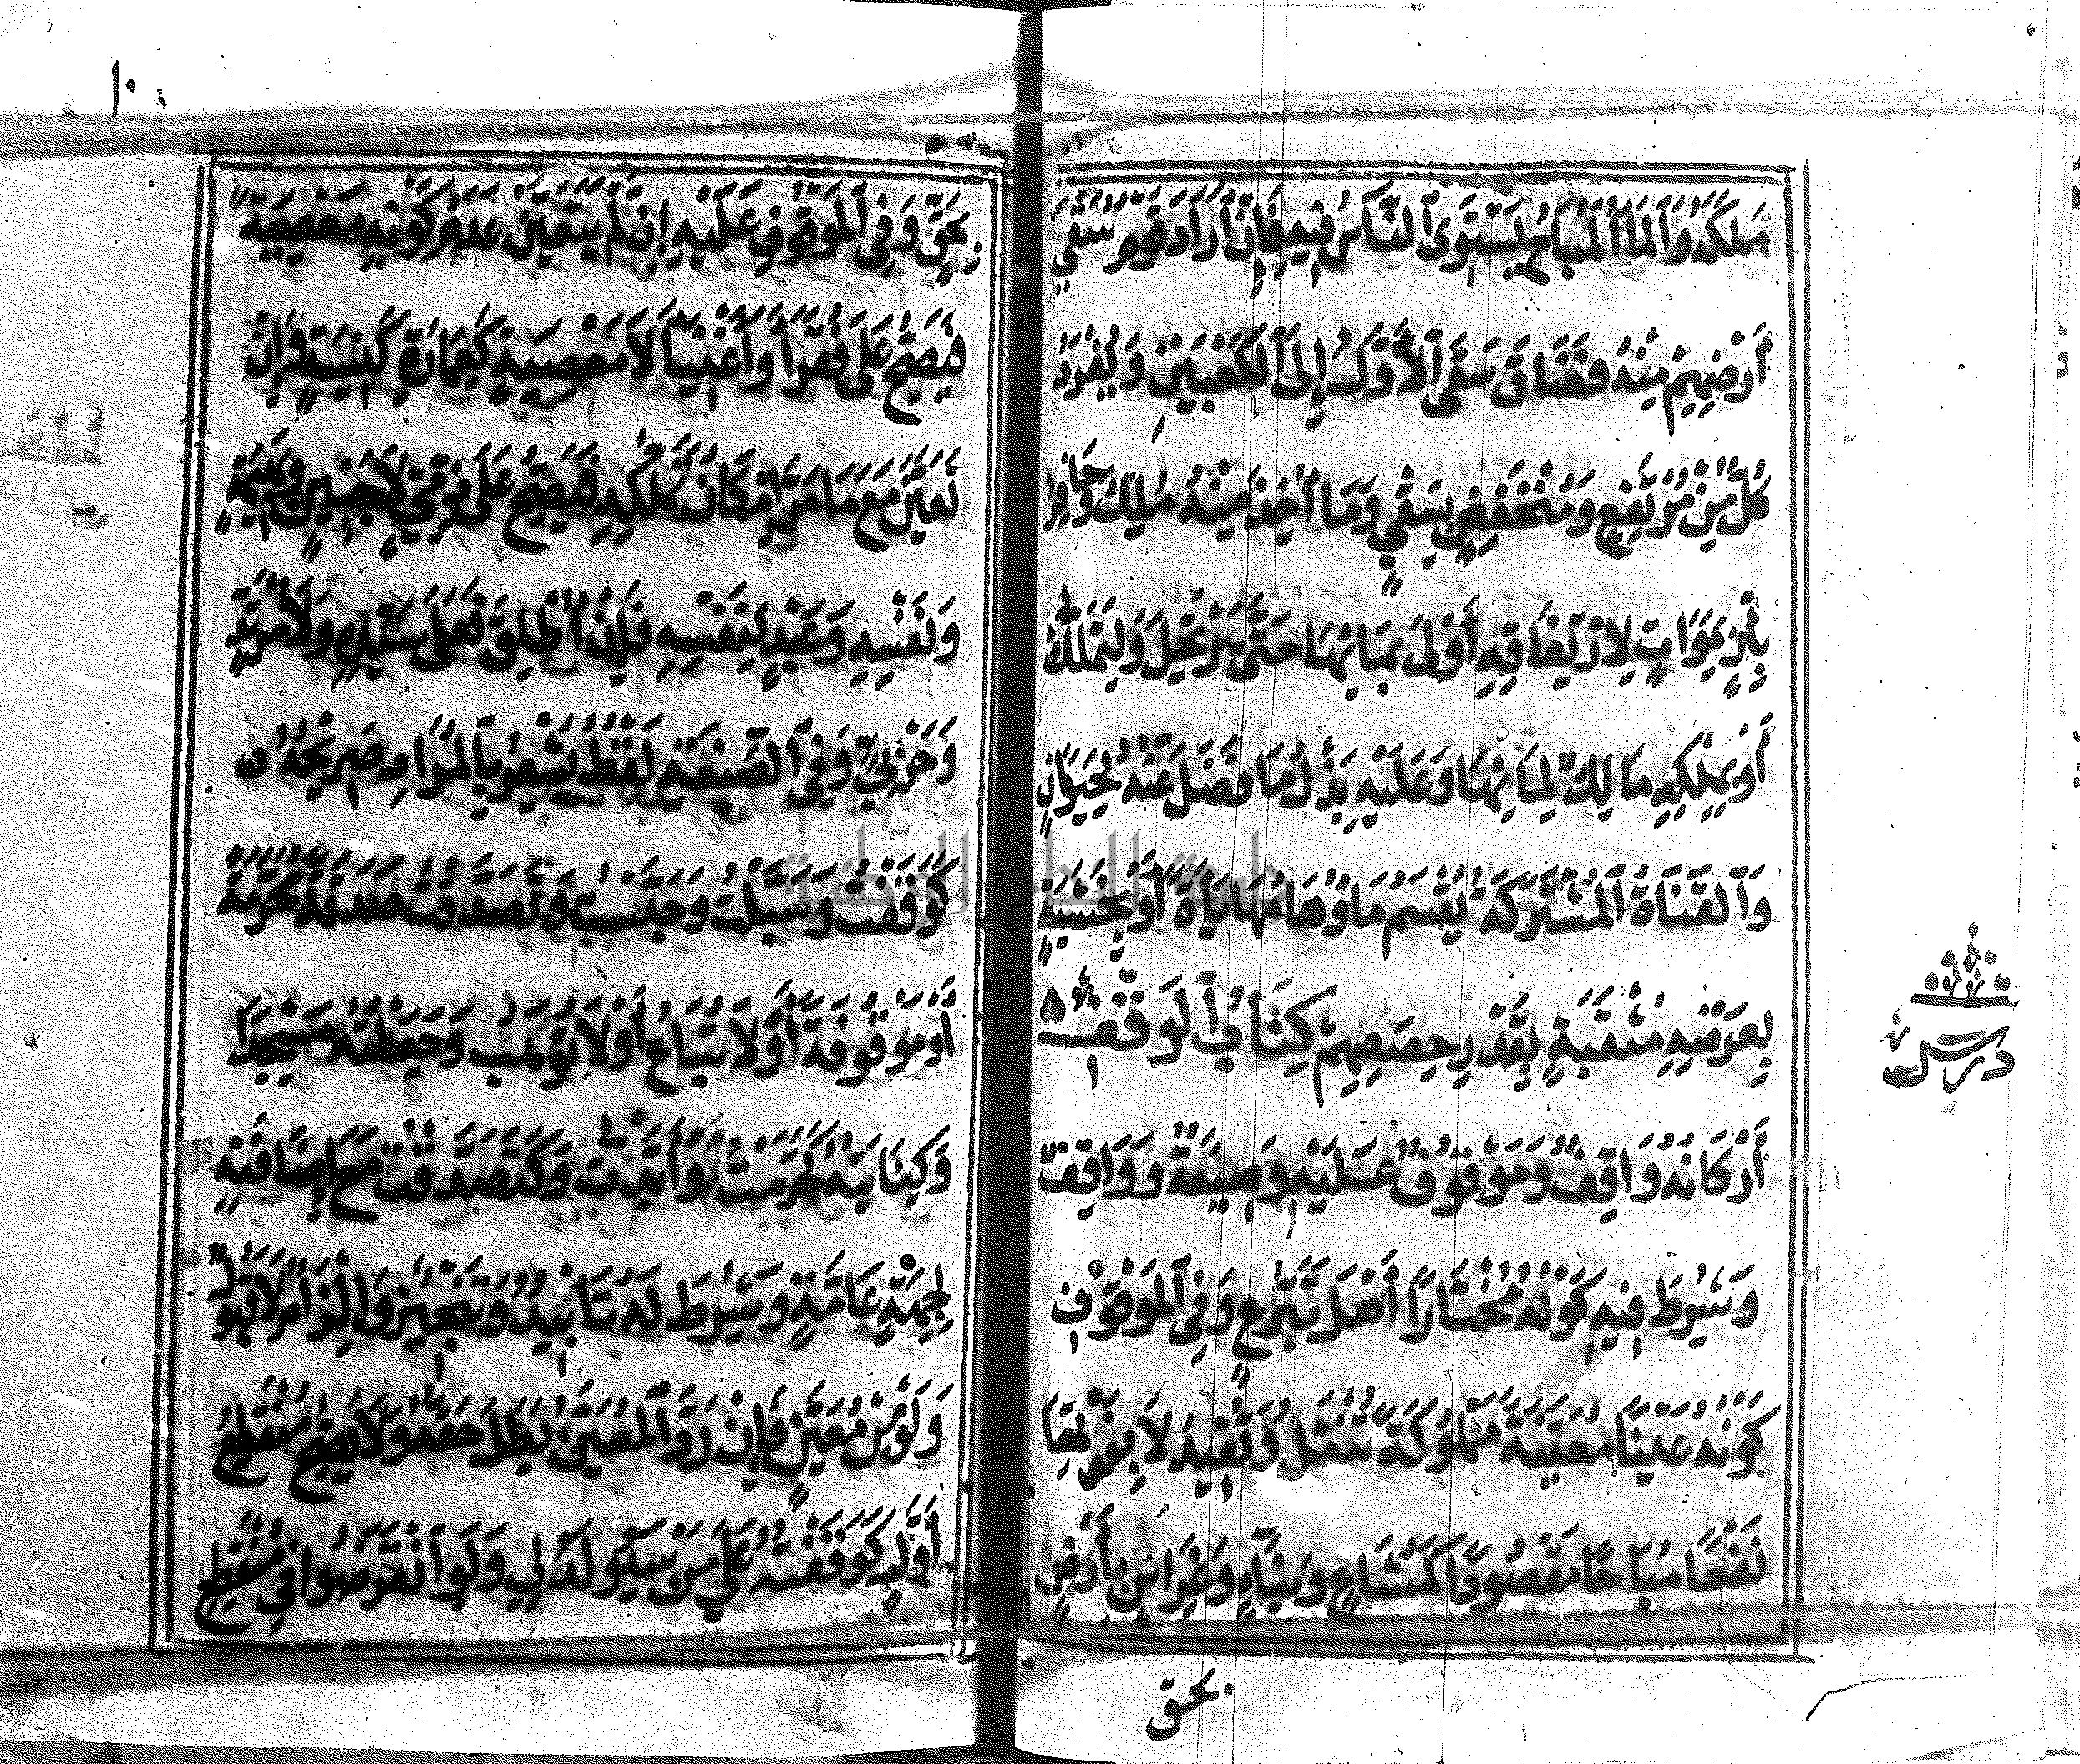 مَلَكَهُ وَالْمَاءُ الْمُبَاحُ يَسْتَوِي النَّاسُ فِيهِ فَإِنْ أَرَادَ قَوْمٌ سَقْيَ
أَرْضِهِمْ مِنْهُ فَضَاقَ سَقَى الْأَوَّلُ إِلَى الْكَعْبَيْنِ وَيُفْرَدُ
كُلٌّ مِنْ مُرْتَفِعٍ وَمُنْخَفِضٍ بِسَقْيٍ وَمَا أُخِذَ مِنْهُ مُلِكَ وَحَافِرُ
بِئْرٍ بِمَوَاتٍ لِارْتِفَاقِهِ أَوْلَى بِمَائِهَا حَتَّى يَرْتَحِلَ وَلِتَمَلُّكٍ
أَوْ بِمِلْكِهِ مَالِكٌ لِمَائِهَا وَعَلَيْهِ بَذْلُ مَا فَضَلَ عَنْهُ لِحَيَوَانٍ
وَالْقَنَاةُ الْمُشْتَرَكَةُ يُقْسَمُ مَاؤُهَا مُهَايَأَةً أَوْ بِخَشَبَةٍ
بِعَرْضِهِ مُثَقَّبَةٍ بِقَدْرِ حِصَصِهِمْ كِتَابُ الْوَقْفِ
أَرْكَانُهُ وَاقِفٌ وَمَوْقُوفٌ عَلَيْهِ وَصِيغَةٌ وَوَاقِفٌ
وَشُرِطَ فِيهِ كَوْنُهُ مُخْتَارًا أَهْلَ تَبَرُّعٍ وَفِي الْمَوْقُوفِ
كَوْنُهُ عَيْنًا مُعَيَّنَةً مَمْلُوكَةً تُنْقَلُ وَتُفِيدُ لَا بِفَوْتِهَا
نَفْعًا مُبَاحًا مَقْصُودًا كَمُشَاعٍ وَبِنَاءٍ وَغِرَاسٍ بِأَرْضٍ
بحق
درس
١٠
بِحَقٍّ وَفِي الْمَوْقُوفِ عَلَيْهِ إِنْ لَمْ يَتَعَيَّنْ عَدَمُ كَوْنِهِ مَعْصِيَةً
فَيَصِحُّ عَلَى فُقَرَاءَ وَأَغْنِيَاءَ لَا مَعْصِيَةٍ كَعِمَارَةِ كَنِيسَةٍ وَإِنْ
تَعَيَّنَ مَعَ مَا مَرَّ إِمْكَانُ تَمَلُّكِهِ فَيَصِحُّ عَلَى ذِمِّيٍّ لَا جَنِينٍ وَبَهِيمَةٍ
وَنَفْسِهِ وَعَبْدٍ لِنَفْسِهِ فَإِنْ أَطْلَقَ فَعَلَى سَيِّدِهِ وَلَا مُرْتَدٍّ
وَحَرْبِيٍّ وَفِي الصِّيغَةِ لَفْظٌ يُشْعِرُ بِالْمُرَادِ صَرِيحُهُ
كَوَقَفْتُ وَسَبَّلْتُ وَحَبَّسْتُ وَتَصَدَّقْتُ صَدَقَةً مُحَرَّمَةً
أَوْ مَوْقُوفَةً أَوْ لَا تُبَاعُ أَوْ لَا تُوهَبُ وَجَعَلْتُهُ مَسْجِدًا
وَكِنَايَتُهُ كَحَرَّمْتُ وَأَبَّدْتُ وَكَتَصَدَّقْتُ مَعَ إِضَافَتِهِ
لِجِهَةٍ عَامَّةٍ وَشُرِطَ لَهُ تَأْبِيدٌ وَتَنْجِيزٌ وَإِلْزَامٌ لَا قَبُولٌ
وَلَوْ مِنْ مُعَيَّنٍ فَإِنْ رَدَّ الْمُعَيَّنُ بَطَلَ حَقُّهُ وَلَا يَصِحُّ مُنْقَطِعُ
أَوَّلٍ كَوَقَفْتُهُ عَلَى مَنْ سَيُولَدُ لِي وَلَوِ انْقَرَضُوا فِي مُنْقَطِعِ